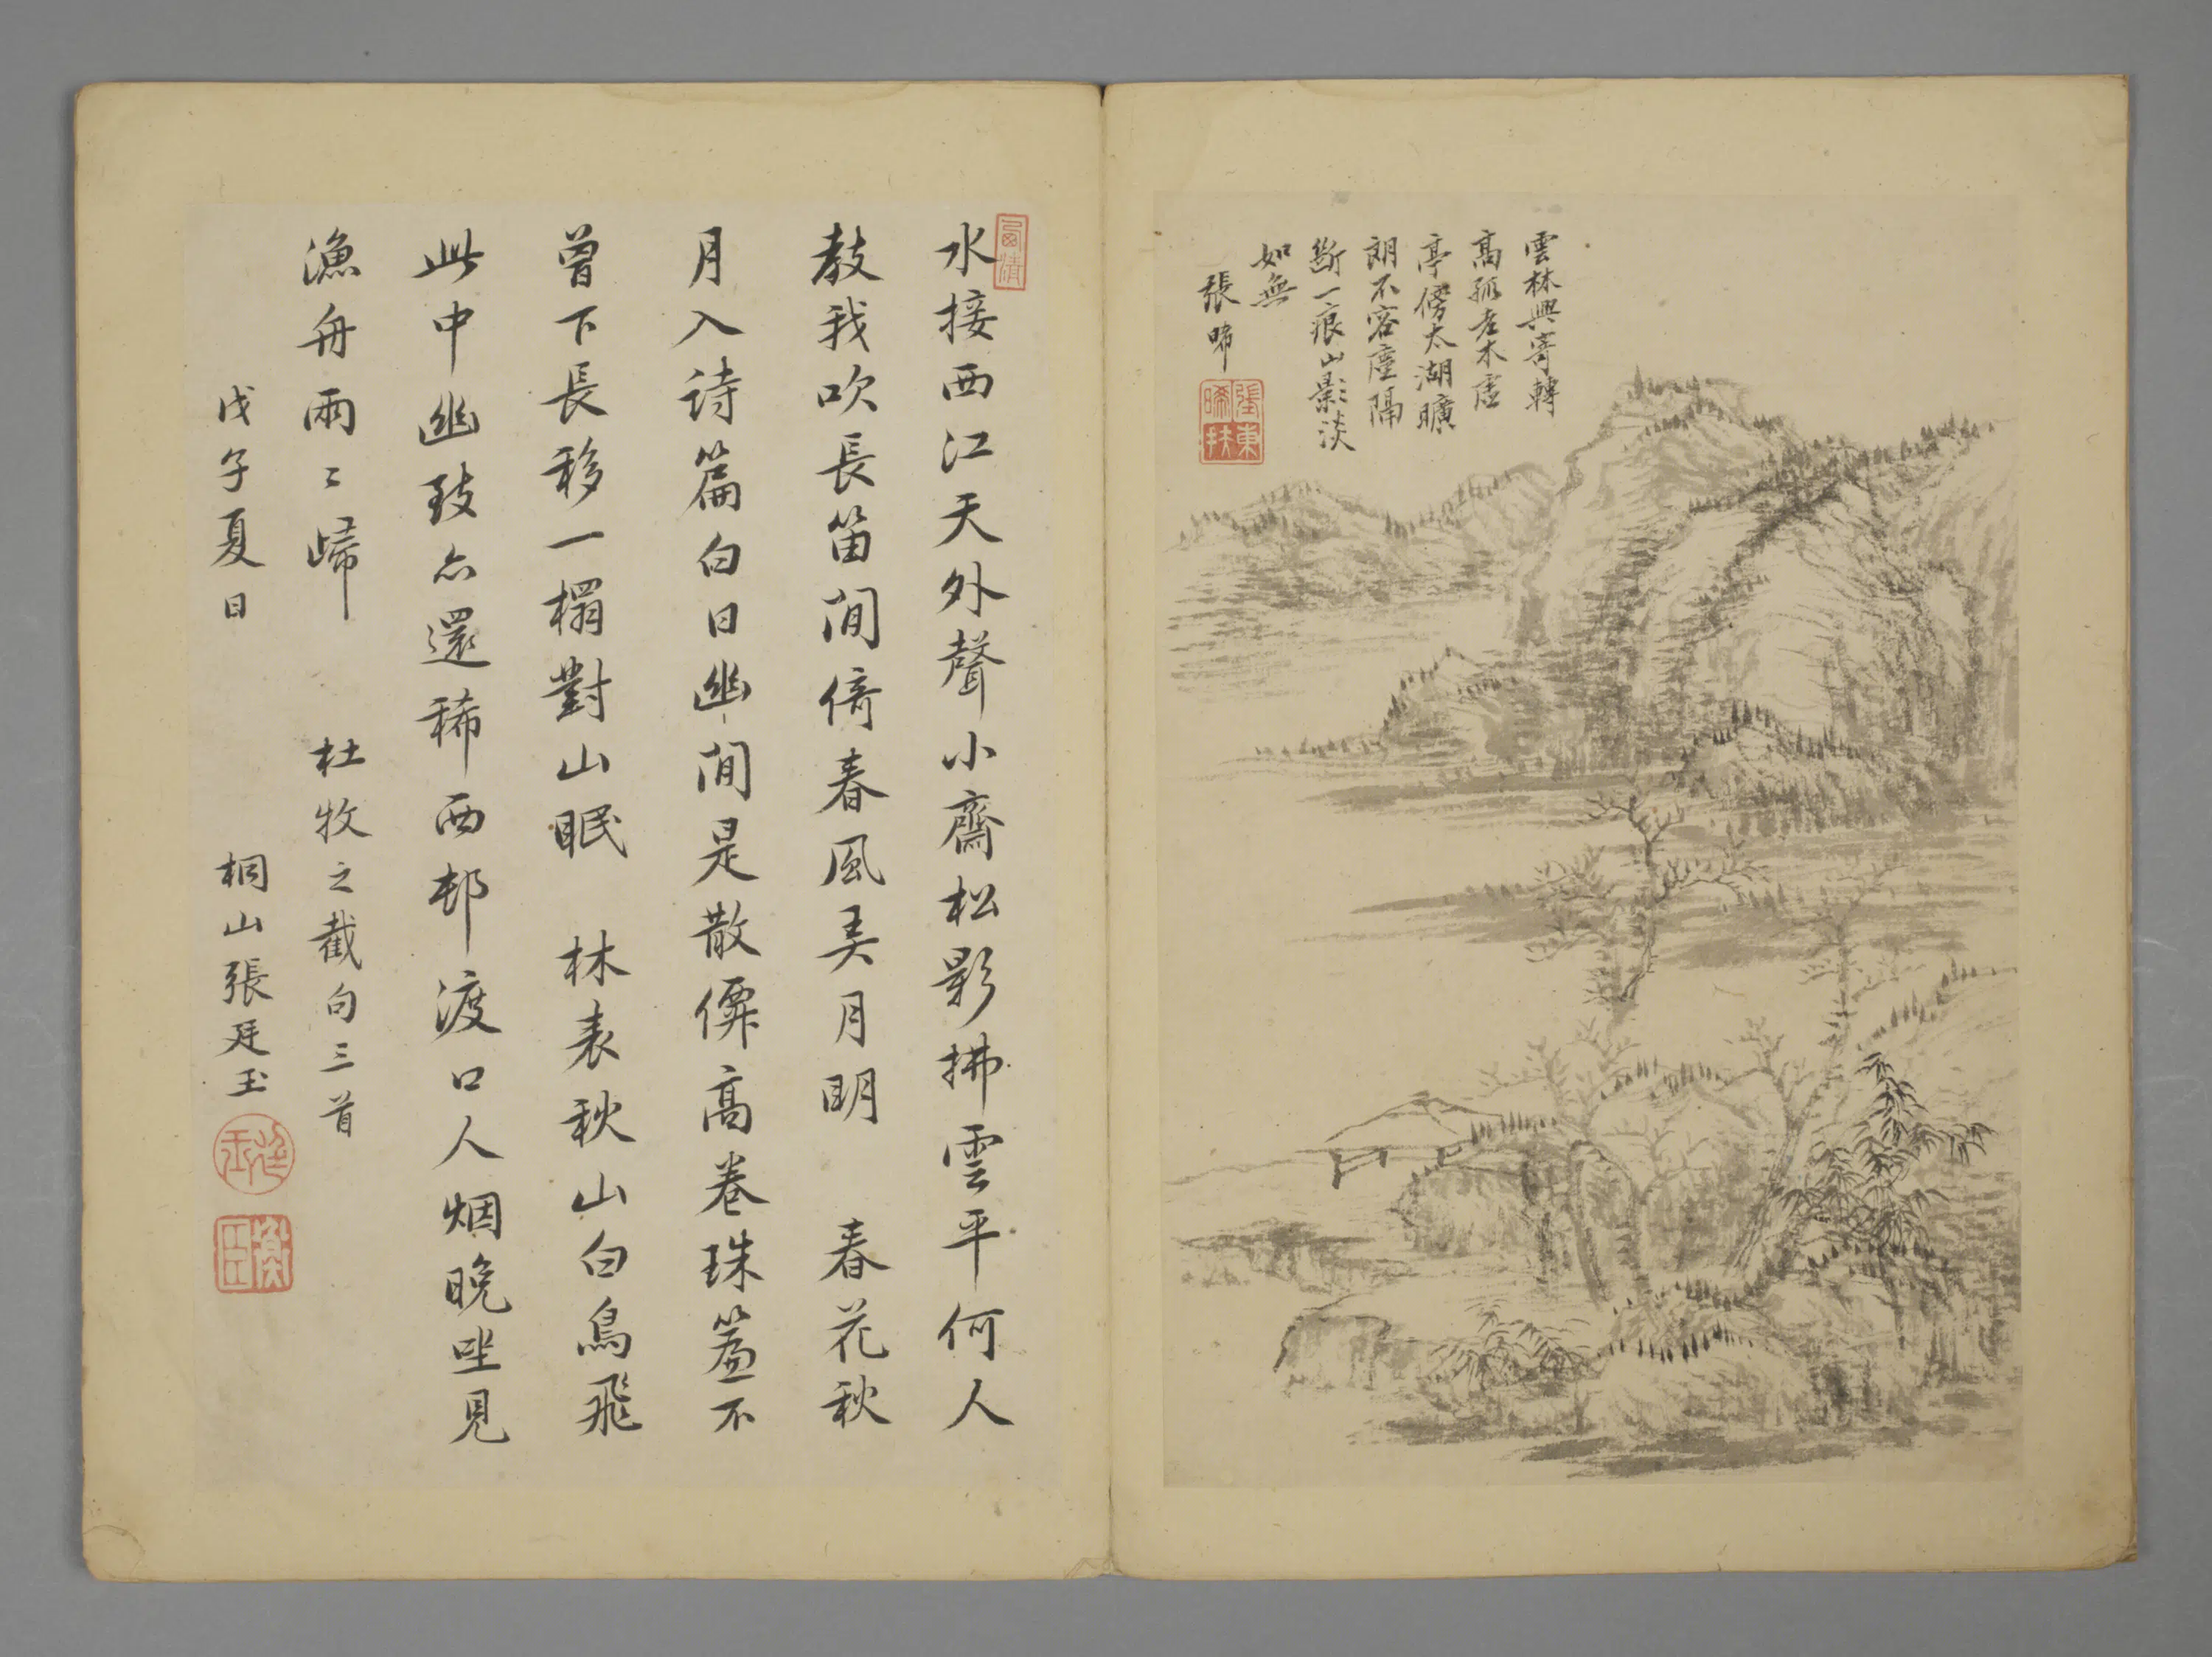 雲林興寄轉
高孤老木虛
亭傍太湖曠
朗不容塵隔
斷一痕山影淡
如無
張晞
張東晞扶
水接西江天外聲小齋松影拂雲平何人
教我吹長笛閒倚春風弄月明 春花秋
月入詩篇白日幽閒是散僊高卷珠簾不
曾下長移一榻對山眠 林表秋山白鳥飛
此中幽致亦還稀西邨渡口人烟晚坐見
漁舟兩〻歸 杜牧之截句三首
戊子夏日 桐山張廷玉
廷玉
衡臣